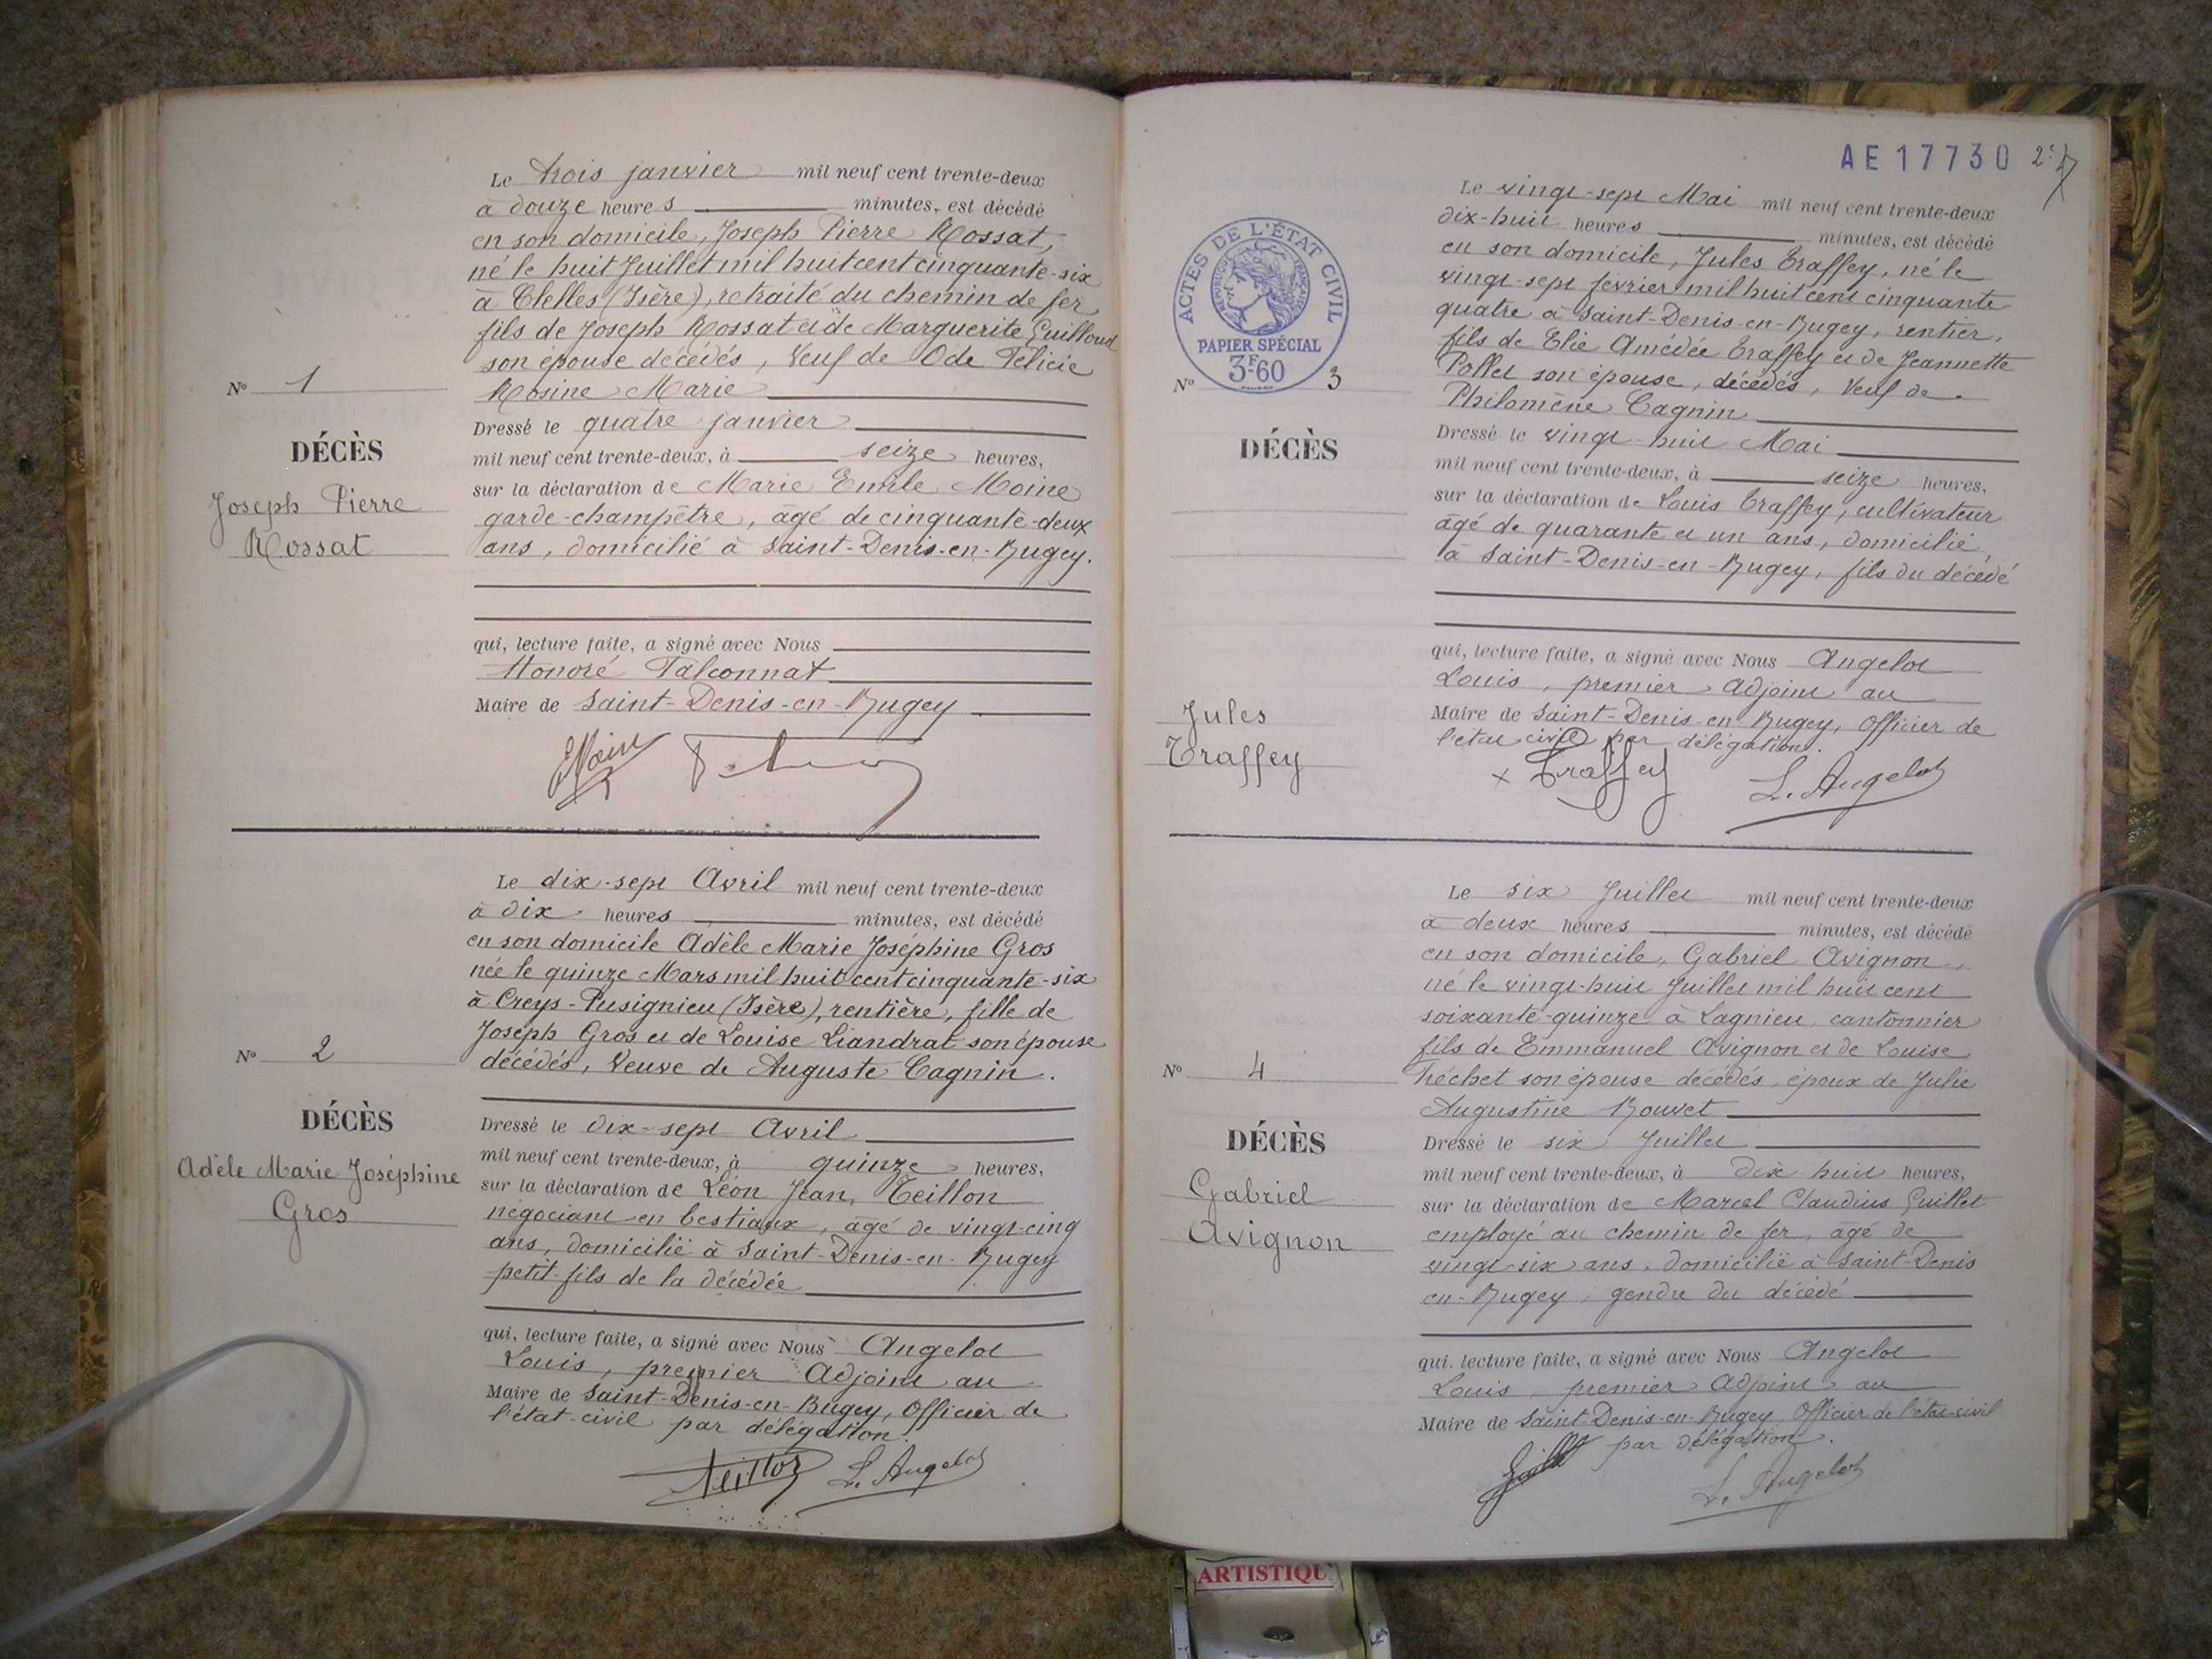 Le trois janvier mil neuf cent trente-deux
à douze heures minutes, est décédé
en son domicile, Joseph Pierre Rossat,
né le huit Juillet mil huit cent cinquante-six
à Clelles (Isère), retraité du chemin de fer
fils de Joseph Rossat et de Marguerite Guilloud
son épouse décédés, Veuf de Ode Félicie
Rosine Marie
Nº 1
DÉCÈS
Joseph Pierre
Rossat
Dressé le quatre janvier
mil neuf cent trente-deux, à seize heures,
sur la déclaration de Marie Emile Moine
garde-champêtre, âgé de cinquante-deux
ans, domicilié à Saint-Denis-en-Bugey.
qui, lecture faite, a signé avec Nous
Honoré Falconnat
Maire de Saint-Denis-en-Bugey
Le dix-sept Avril mil neuf cent trente-deux
à dix heures minutes, est décédé
en son domicile Adèle Marie Joséphine Gros
née le quinze Mars mil huit cent cinquante-six
à Creys-Pusignieu (Isère), rentière, fille de
Joseph Gros et de Louise Liandrat son épouse
décédés, Veuve de Auguste Cagnin.
Nº 2
DÉCÈS
Adèle Marie Joséphine
Gros
Dressé le dix-sept Avril
mil neuf cent trente-deux, à quinze heures,
sur la déclaration de Léon Jean, Teillon
négociant en bestiaux, âgé de vingt-cinq
ans, domicilié à Saint-Denis-en-Bugey
petit-fils de la décédée
qui, lecture faite, a signé avec Nous Angelot
Louis, premier Adjoint au
Maire de Saint-Denis-en-Bugey, Officier de
l'état-civil par délégation.
Teillon L. Angelot
AE 17730
ACTES DE L'ÉTAT CIVIL
RÉPUBLIQUE FRANÇAISE
PAPIER SPÉCIAL
3F60
Le vingt-sept Mai mil neuf cent trente-deux
dix-huit heures minutes, est décédé
en son domicile, Jules Traffey, né le
vingt-sept février mil huit cent cinquante
quatre à Saint-Denis-en-Bugey, rentier,
fils de Elie Amédée Traffey et de Jeannette
Pollet son épouse, décédés, Veuf de
Philomène Cagnin
Nº 3
DÉCÈS
Jules
Traffey
Dressé le vingt-huit Mai
mil neuf cent trente-deux, à seize heures,
sur la déclaration de Louis Traffey, cultivateur
âgé de quarante et un ans, domicilié,
à Saint-Denis-en-Bugey, fils du décédé
qui, lecture faite, a signé avec Nous Angelot
Louis, premier Adjoint au
Maire de Saint-Denis-en-Bugey, Officier de
l'état civil par délégation.
x Traffey L. Angelot
Le six Juillet mil neuf cent trente-deux
à deux heures minutes, est décédé
en son domicile, Gabriel Avignon,
né le vingt-huit Juillet mil huit cent
soixante-quinze à Lagnieu, cantonnier
fils de Emmanuel Avignon et de Louise
Tréchet son épouse décédés, époux de Julie
Augustine Bouvet
Nº 4
DÉCÈS
Gabriel
Avignon
Dressé le six Juillet
mil neuf cent trente-deux, à dix-huit heures,
sur la déclaration de Marcel Claudius Guillet
employé au chemin de fer, âgé de
vingt-six ans, domicilié à Saint-Denis
en-Bugey, gendre du décédé
qui, lecture faite, a signé avec Nous Angelot
Louis, premier Adjoint au
Maire de Saint-Denis-en-Bugey, Officier de l'état-civil
par délégation.
L. Angelot
ARTISTIQU